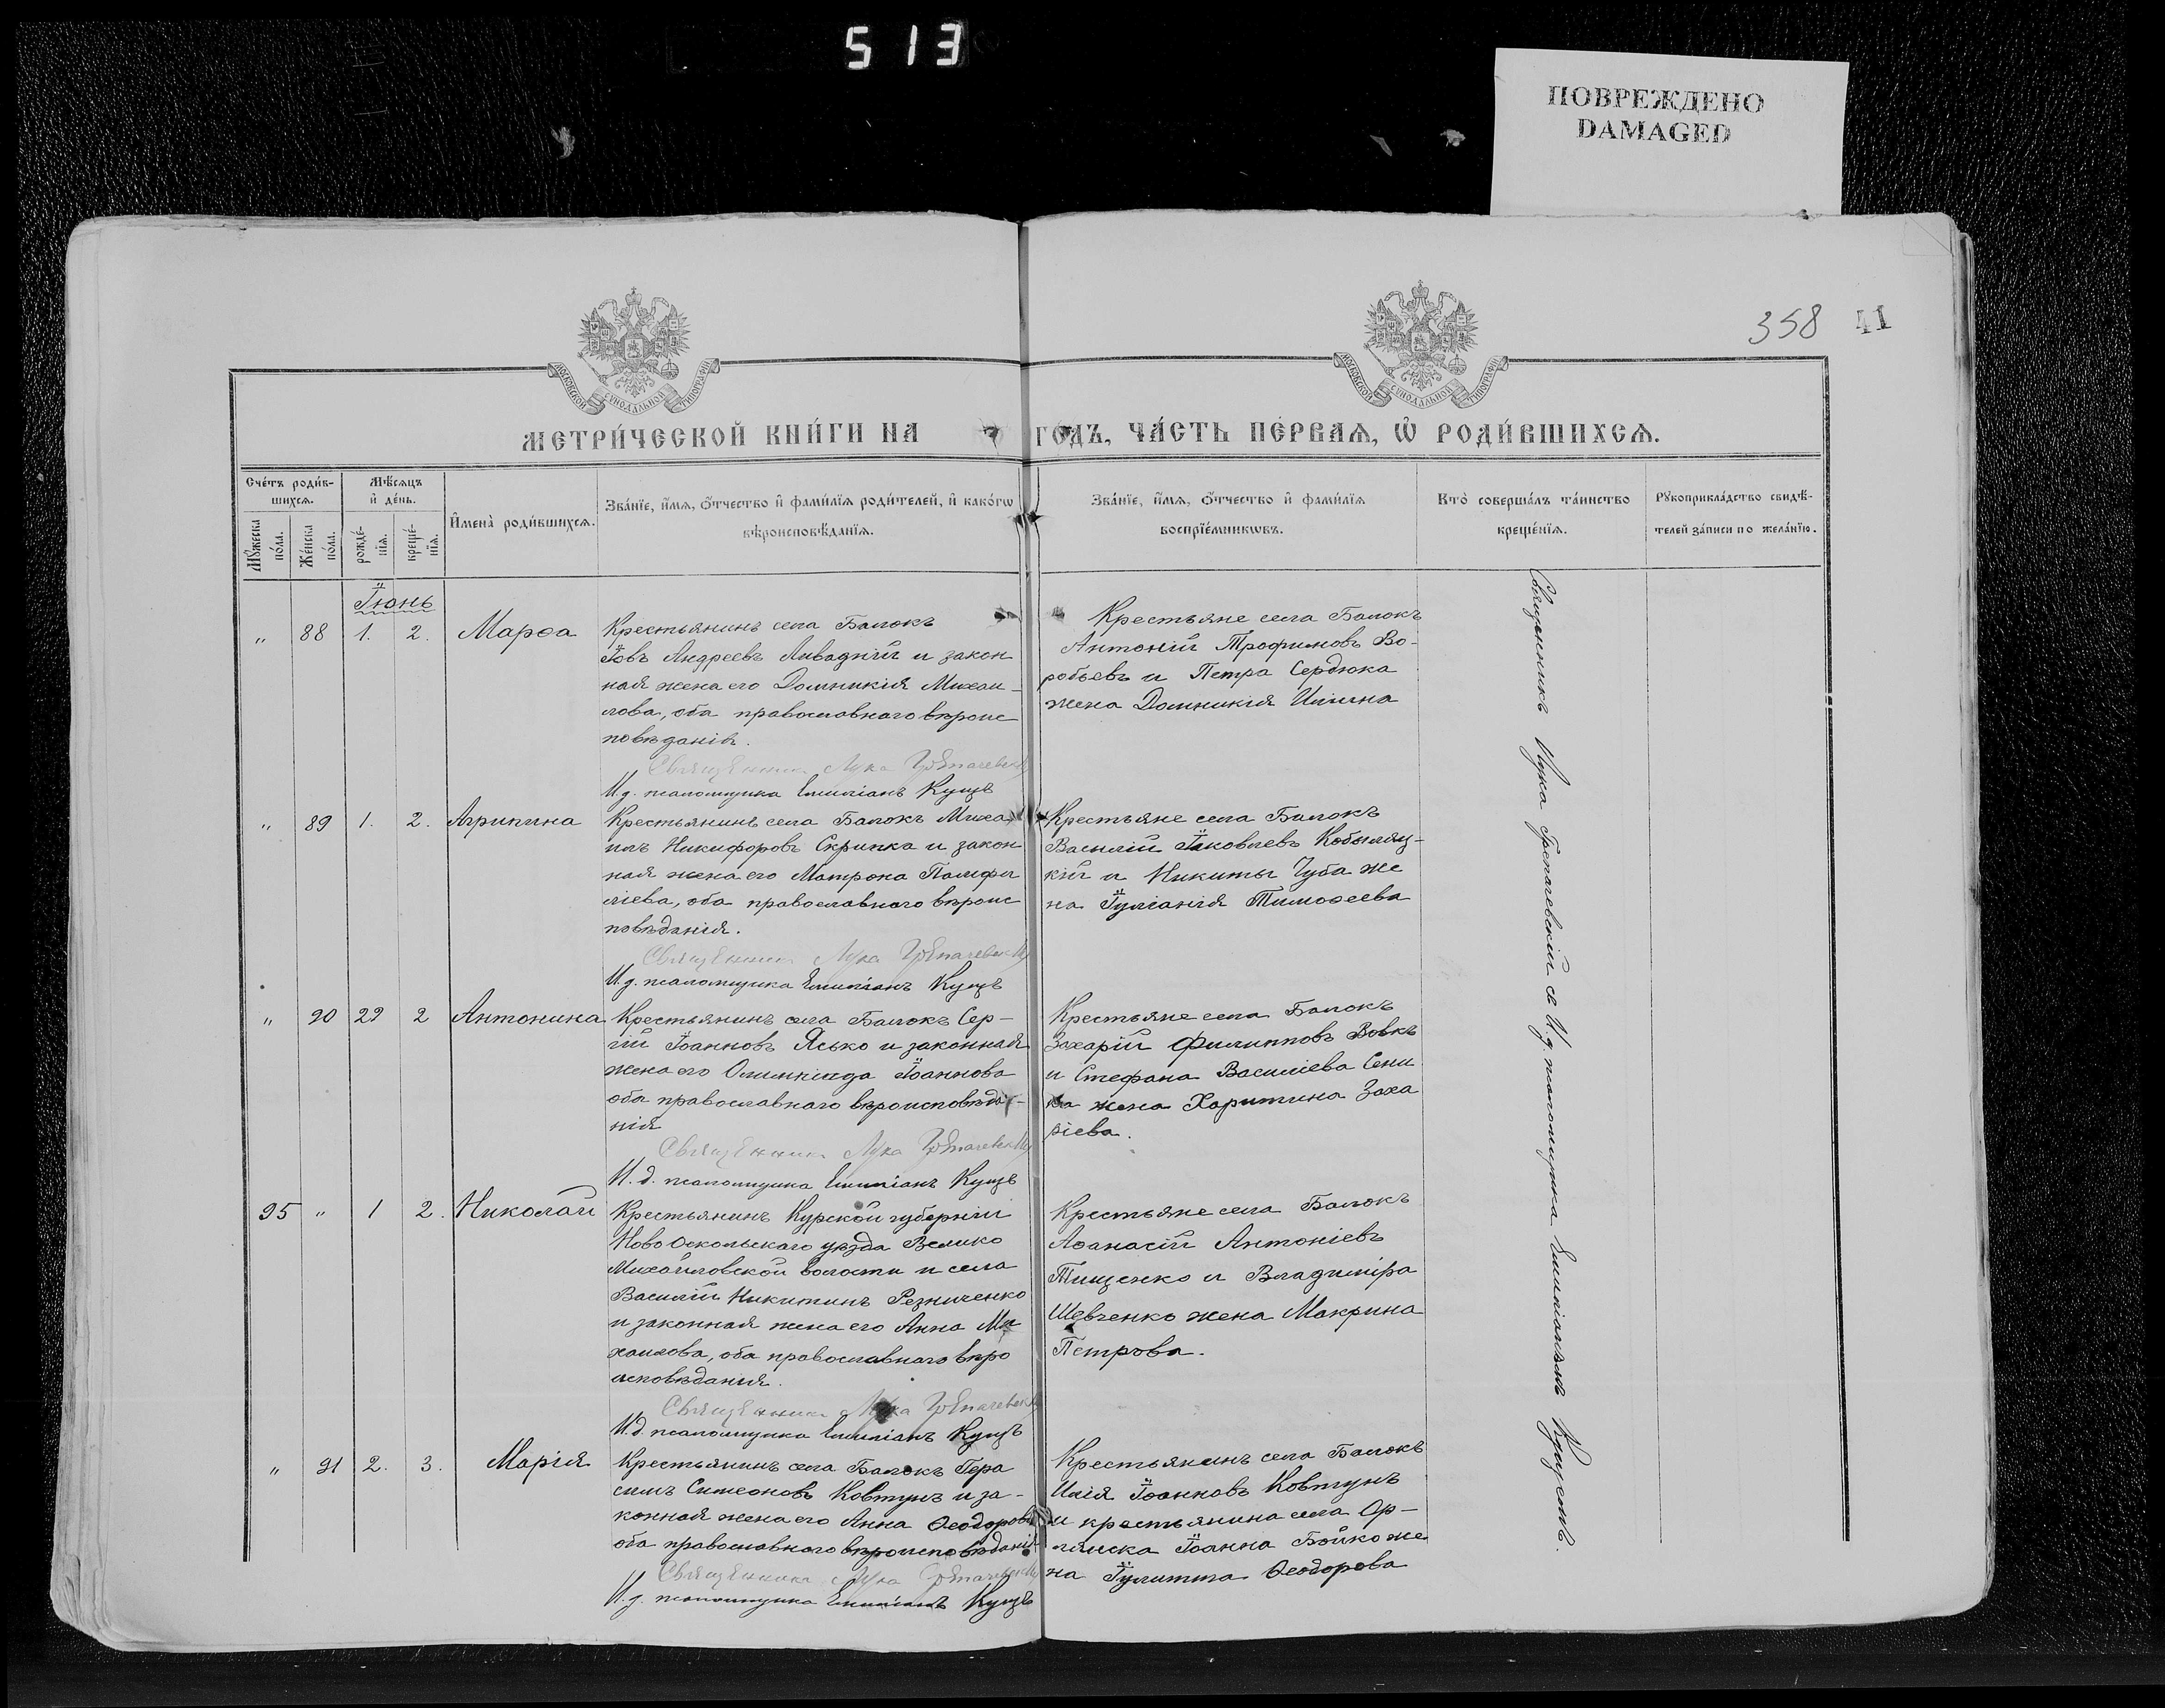 513
ПОВРЕЖДЕНО
DAMAGED
358 41
МОСКОВСКОЙ СѴНОДАЛЬНОЙ ТИПОГРАФІИ
МОСКОВСКОЙ СѴНОДАЛЬНОЙ ТИПОГРАФІИ
МЕТРИ́ЧЕСКОЙ КНИ́ГИ НА ГОДЪ, ЧА́СТЬ ПЕ́РВАѦ, Ѡ҆ РОДИ́ВШИХСѦ.
Сче́тъ роди́в-
шихсѧ.
Мꙋ́жеска
по́ла.
Же́нска
по́ла.
Мѣ́сѧцъ
и҆ де́нь.
рожде́-
нїѧ.
креще́-
нїѧ.
И҆мена̀ роди́вшихсѧ.
Зва́нїе, и҆́мѧ, ѻ҆́тчество и҆ фами́лїѧ роди́телей, и҆ како́гѡ
вѣроисповѣ́данїѧ.
Зва́нїе, и҆́мѧ, ѻ҆́тчество и҆ фами́лїѧ
воспрїе́мникѡвъ.
Кто̀ соверша́лъ та́инство
креще́нїѧ.
Рꙋкоприкла́дство свидѣ́-
телей за́писи по жела́нїю.
Іюнь
" 88 1. 2. Марѳа
Крестьянинъ села Балокъ
Іовъ Андреевъ Ливадній и закон
ная жена его Домникія Михаи-
лова, оба православнаго вѣроис
повѣданія.
Священникъ Лука Грепачевскій
И. д. псаломщика Емиліанъ Кущъ
Крестьяне села Балокъ
Антоній Трофимовъ Во-
робьевъ и Петра Сердюка
жена Домникія Иліина
" 89 1. 2. Агрипина
Крестьянинъ села Балокъ Миха
илъ Никифоровъ Скрипка и закон
ная жена его Матрона Памфи
ліева, оба православнаго вѣроис
повѣданія.
Священникъ Лука Грепачевскій
И. д. псаломщика Емиліанъ Кущъ
Крестьяне села Балокъ
Василій Іаковлевъ Кобыляц-
кій и Никиты Чуба же
на Іуліанія Тимоѳеева
" 90 29 2 Антонина
Крестьянинъ села Балокъ Сер-
гій Іоанновъ Ясько и законная
жена его Олимпіада Іоаннова
оба православнаго вѣроисповѣда-
нія
Священникъ Лука Грепачевскій
И. д. псаломщика Емиліанъ Кущъ
Крестьяне села Балокъ
Захарій Филипповъ Вовкъ
и Стефана Василіева Сени
ка жена Харитина Заха
ріева.
95 " 1 2. Николай
Крестьянинъ Курской губерніи
Ново Оскольскаго уѣзда Велико
Михайловской волости и села
Василій Никитинъ Резниченко
и законная жена его Анна Ми
хаилова, оба православнаго вѣро
исповѣданія.
Священникъ Лука Грепачевскій
И. д. псаломщика Емиліанъ Кущъ
Крестьяне села Балокъ
Аѳанасій Антоніевъ
Тищенко и Владиміра
Шевченко жена Макрина
Петрова.
" 91 2. 3. Марія
Крестьянинъ села Балокъ Гера
симъ Симеоновъ Ковтунъ и за-
конная жена его Анна Ѳеодорова
оба православнаго вѣроисповѣданія
Священникъ Лука Грепачевскій
И. д. псаломщика Емиліанъ Кущъ
Крестьянинъ села Балокъ
Илія Іоанновъ Ковтунъ
и крестьянина села Ор-
лянска Іоанна Бойко же
на Іулитта Ѳеодорова
Священникъ Лука Грепачевскій съ И. д. псаломщика Емиліаномъ Кущемъ.